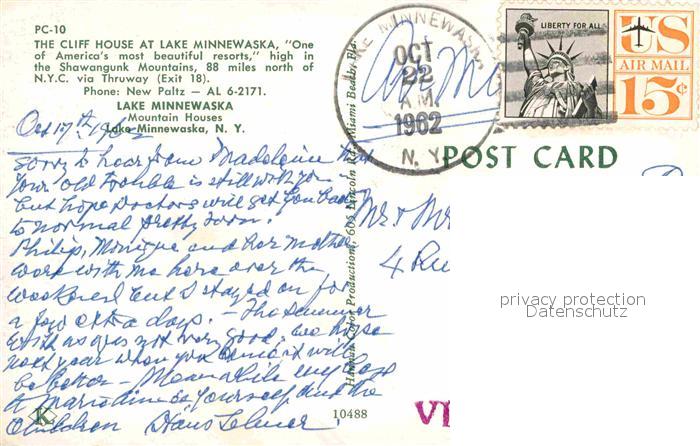 PC-10
THE CLIFF HOUSE AT LAKE MINNEWASKA, "One
of America's most beautiful resorts," high in
the Shawangunk Mountains, 88 miles north of
N.Y.C. via Thruway (Exit 18).
Phone: New Paltz — AL 6-2171.
LAKE MINNEWASKA
Mountain Houses
Lake Minnewaska, N. Y.
Oct 17th 1962
Sorry to hear from Madeleine that
your old trouble is still with you
but hope Doctors will get you back
to normal pretty soon!
Philip, Monique and her mother
were with me here over the
weekend but I stayed on for
a few extra days. - The summer
with us was not very good, we hope
next year when you come it will
be better - Meanwhile my love
to yourself and the
Children Hans
10488
K
Hannau Color Productions, 605 Lincoln Rd., Miami Beach, Fla.
LAKE MINNEWASKA
OCT
22
A.M.
1962
N. Y.
LIBERTY FOR ALL
US
AIR MAIL
15¢
Air Mail
POST CARD
Mr & Mr
4 Ru
privacy protection
Datenschutz